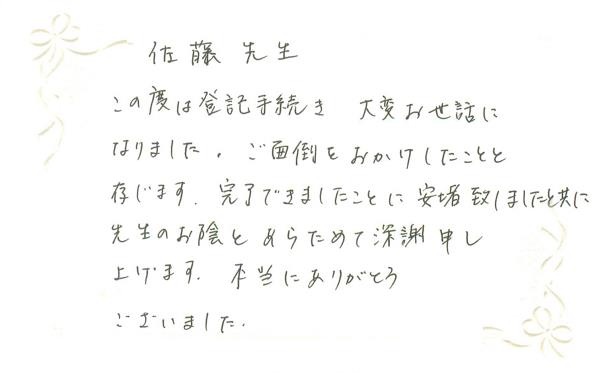 佐藤 先生
この度は登記手続き 大変お世話に
なりました。ご面倒をおかけしたことと
存じます。完了できましたことに安堵致しましたと共に
先生のお陰と あらためて深謝申し
上げます。本当にありがとう
ございました。